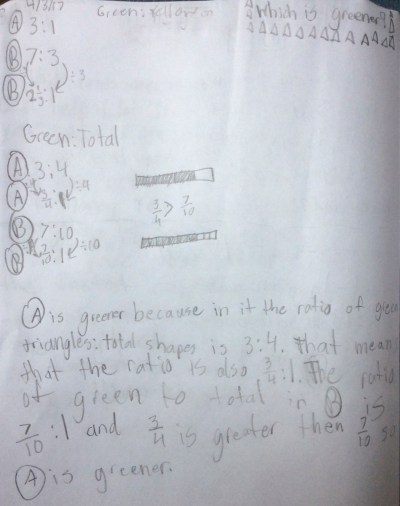 4/3/17 Green:Yellow Which is greener?
A 3:1
B 7:3
÷3
B 2⅓:1
Green:Total
A 3:4
A ¾:1 ÷4
¾ > 7/10
B 7:10
B 7/10:1 ÷10
A is greener because in it the ratio of green
triangles:total shapes is 3:4. That mean
that the ratio is also ¾:1. The ratio
of green to total in B is
7/10:1 and ¾ is greater then 7/10 so
A is greener.